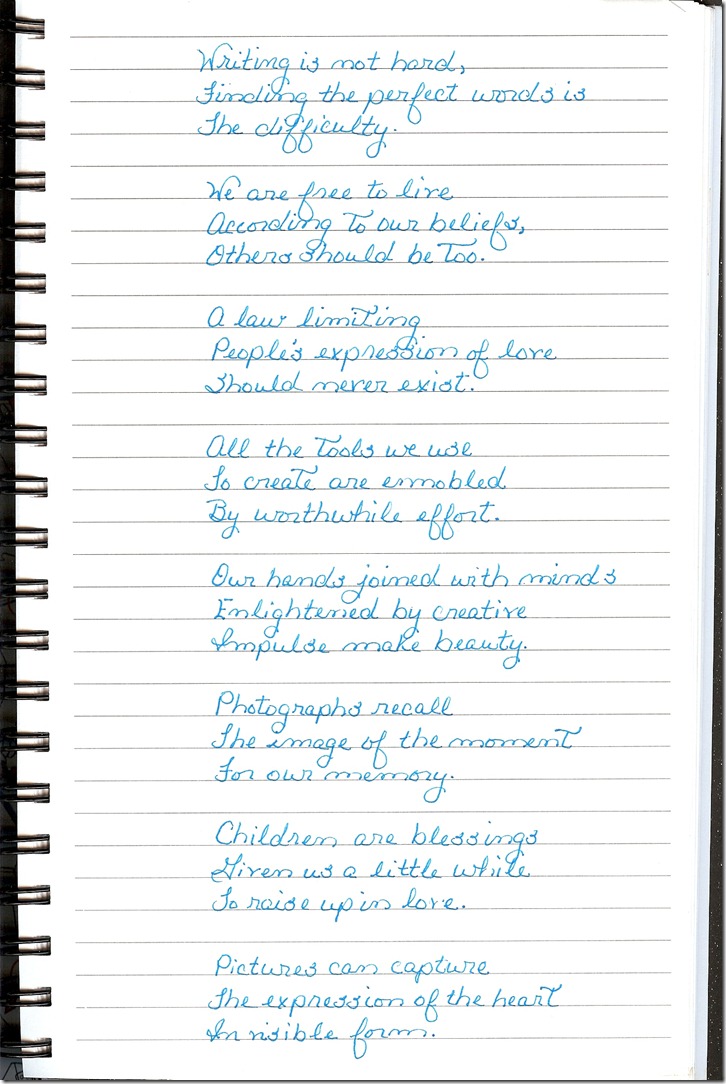 Writing is not hard,
Finding the perfect words is
The difficulty.
We are free to live
According to our beliefs,
Others should be too.
A law limiting
People's expression of love
Should never exist.
All the tools we use
To create are ennobled
By worthwhile effort.
Our hands joined with minds
Enlightened by creative
Impulse make beauty.
Photographs recall
The image of the moment
For our memory.
Children are blessings
Given us a little while
To raise up in love.
Pictures can capture
The expression of the heart
In visible form.